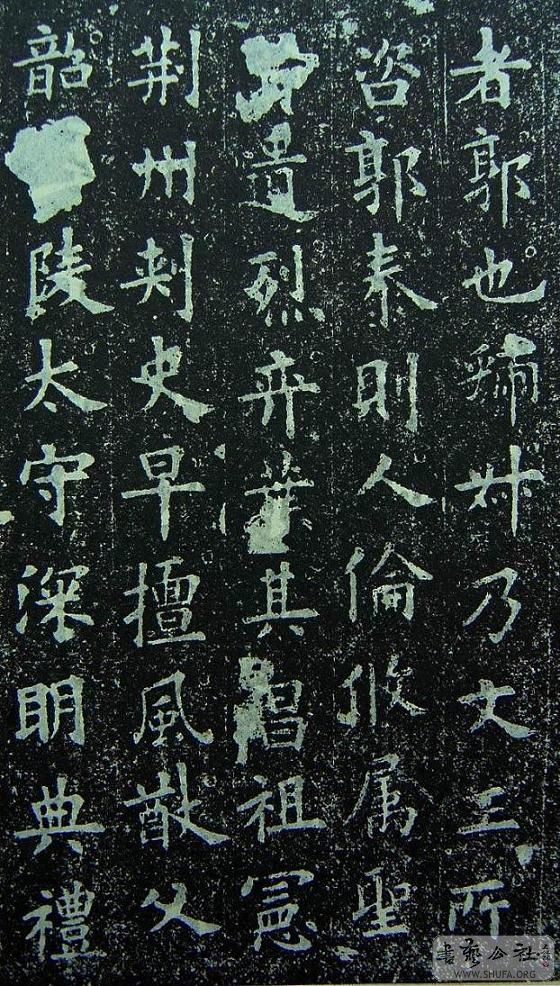 者郭也虢叔乃文王所
咨郭泰則人倫攸属聖
遺烈弈葉其昌祖憲
荆州刺史早擅風猷父
韶陵太守深明典禮
書藝公社
WWW.SHUFA.ORG